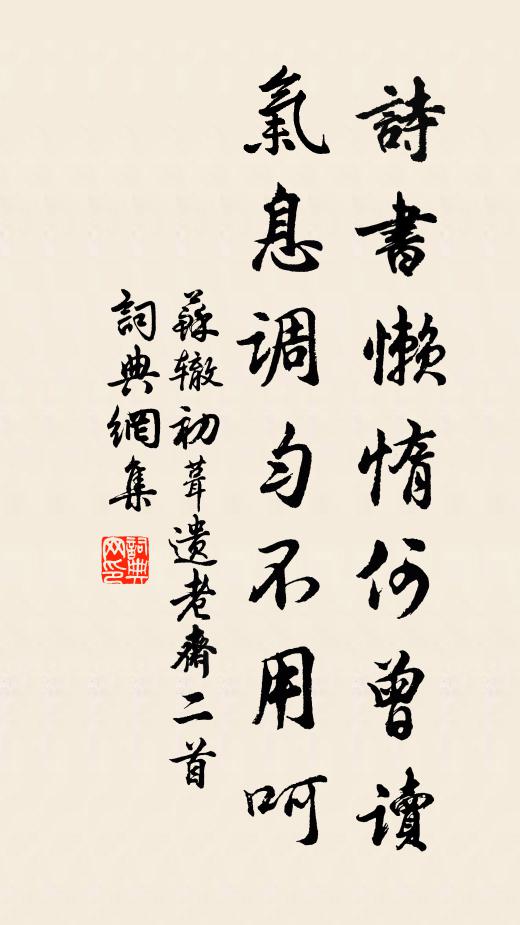 詩書懶惰何曾讀
氣息調勻不用呵
蘇辙初葺遺老齋二首
詞典網集
詞典网印